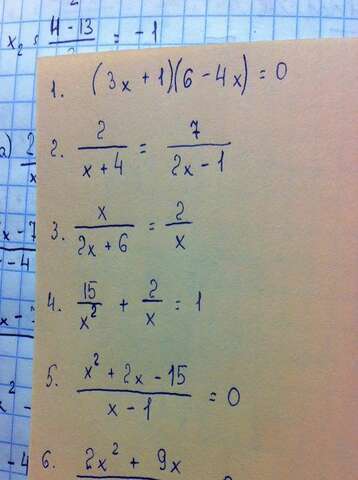 x₂ = (4-13)/ = -1
1. (3x + 1)(6 - 4x) = 0
2. 2/(x + 4) = 7/(2x - 1)
3. x/(2x + 6) = 2/x
4. 15/x² + 2/x = 1
5. (x² + 2x - 15)/(x - 1) = 0
6. 2x² + 9x